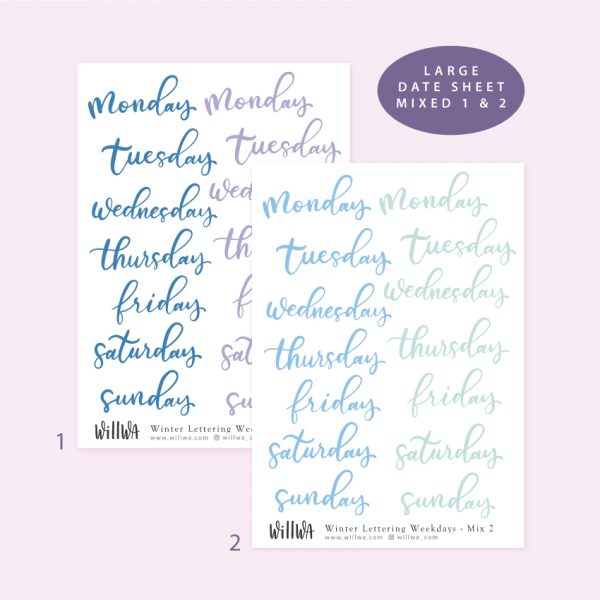 LARGE
DATE SHEET
MIXED 1 & 2
monday monday
tuesday tuesday
wednesday
thursday
friday
saturday
sunday
WillWa Winter Lettering
www.willwa.com willwa_
1
monday monday
tuesday tuesday
wednesday wednesday
thursday thursday
friday friday
saturday saturday
sunday sunday
WillWa Winter Lettering Weekdays - Mix 2
www.willwa.com willwa_com
2